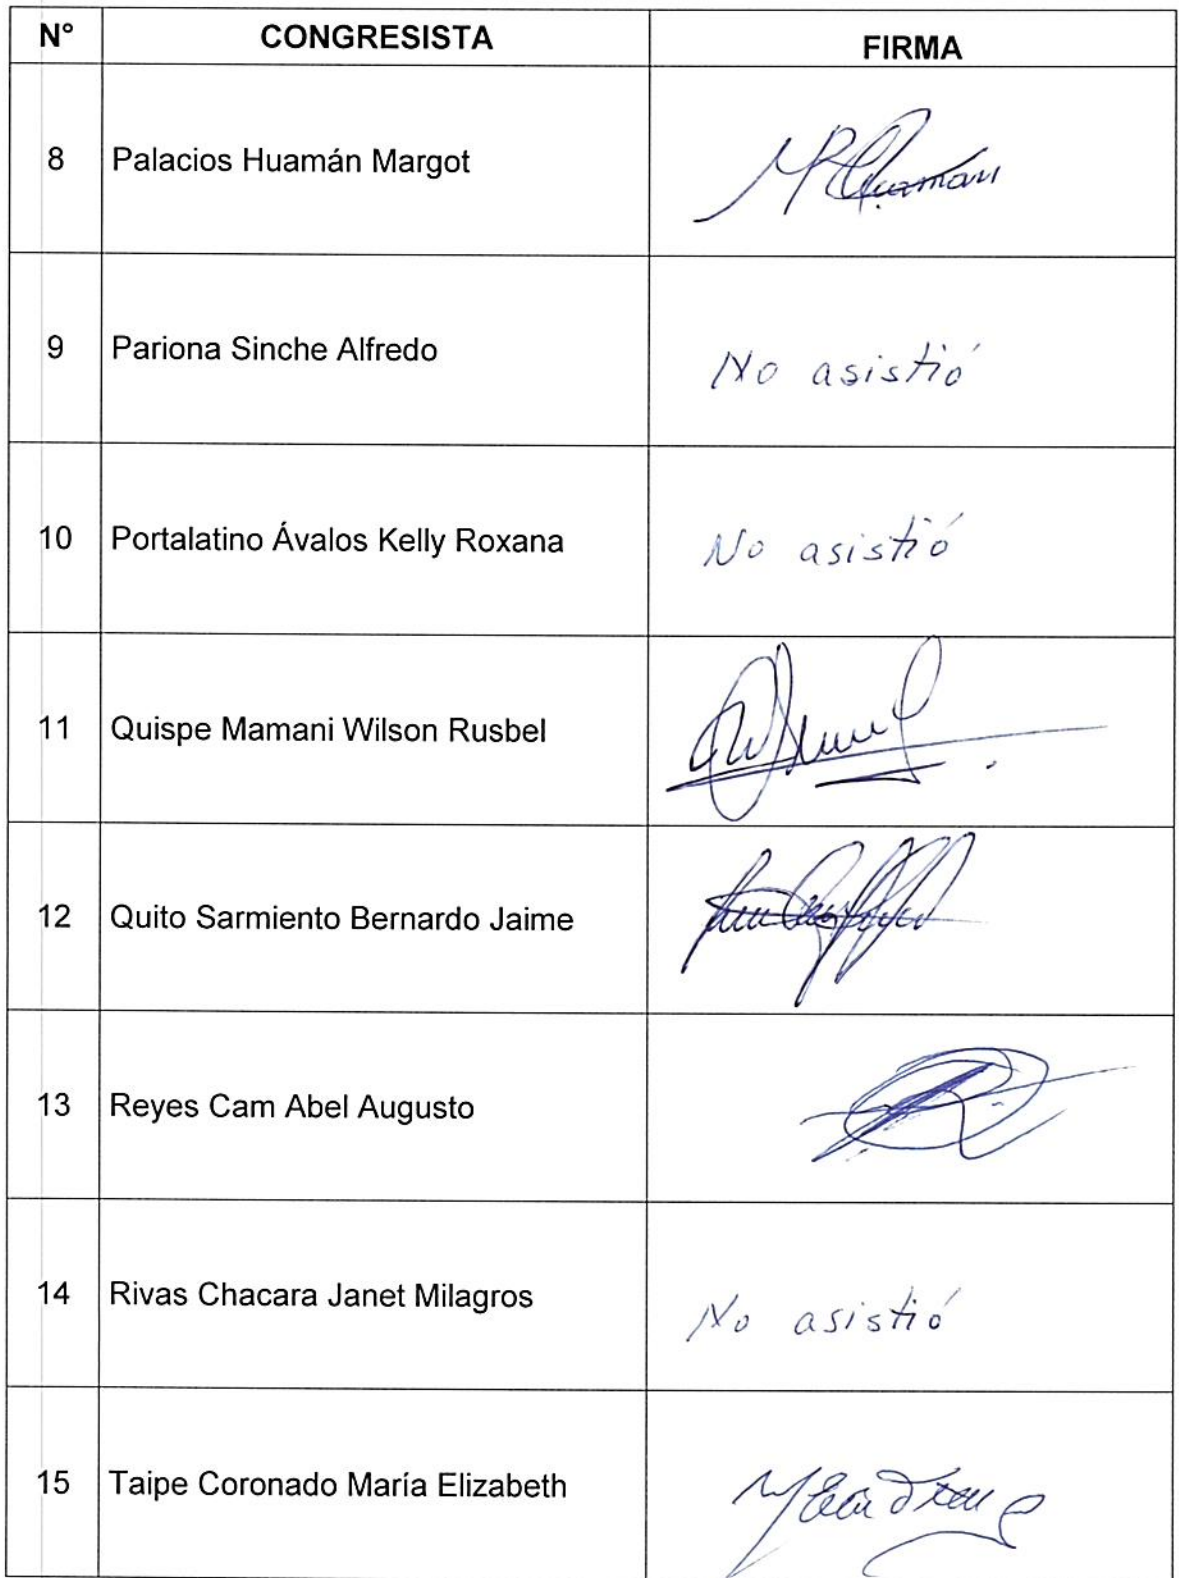 N° CONGRESISTA FIRMA
8 Palacios Huamán Margot
9 Pariona Sinche Alfredo No asistió
10 Portalatino Ávalos Kelly Roxana No asistió
11 Quispe Mamani Wilson Rusbel
12 Quito Sarmiento Bernardo Jaime
13 Reyes Cam Abel Augusto
14 Rivas Chacara Janet Milagros No asistió
15 Taipe Coronado María Elizabeth